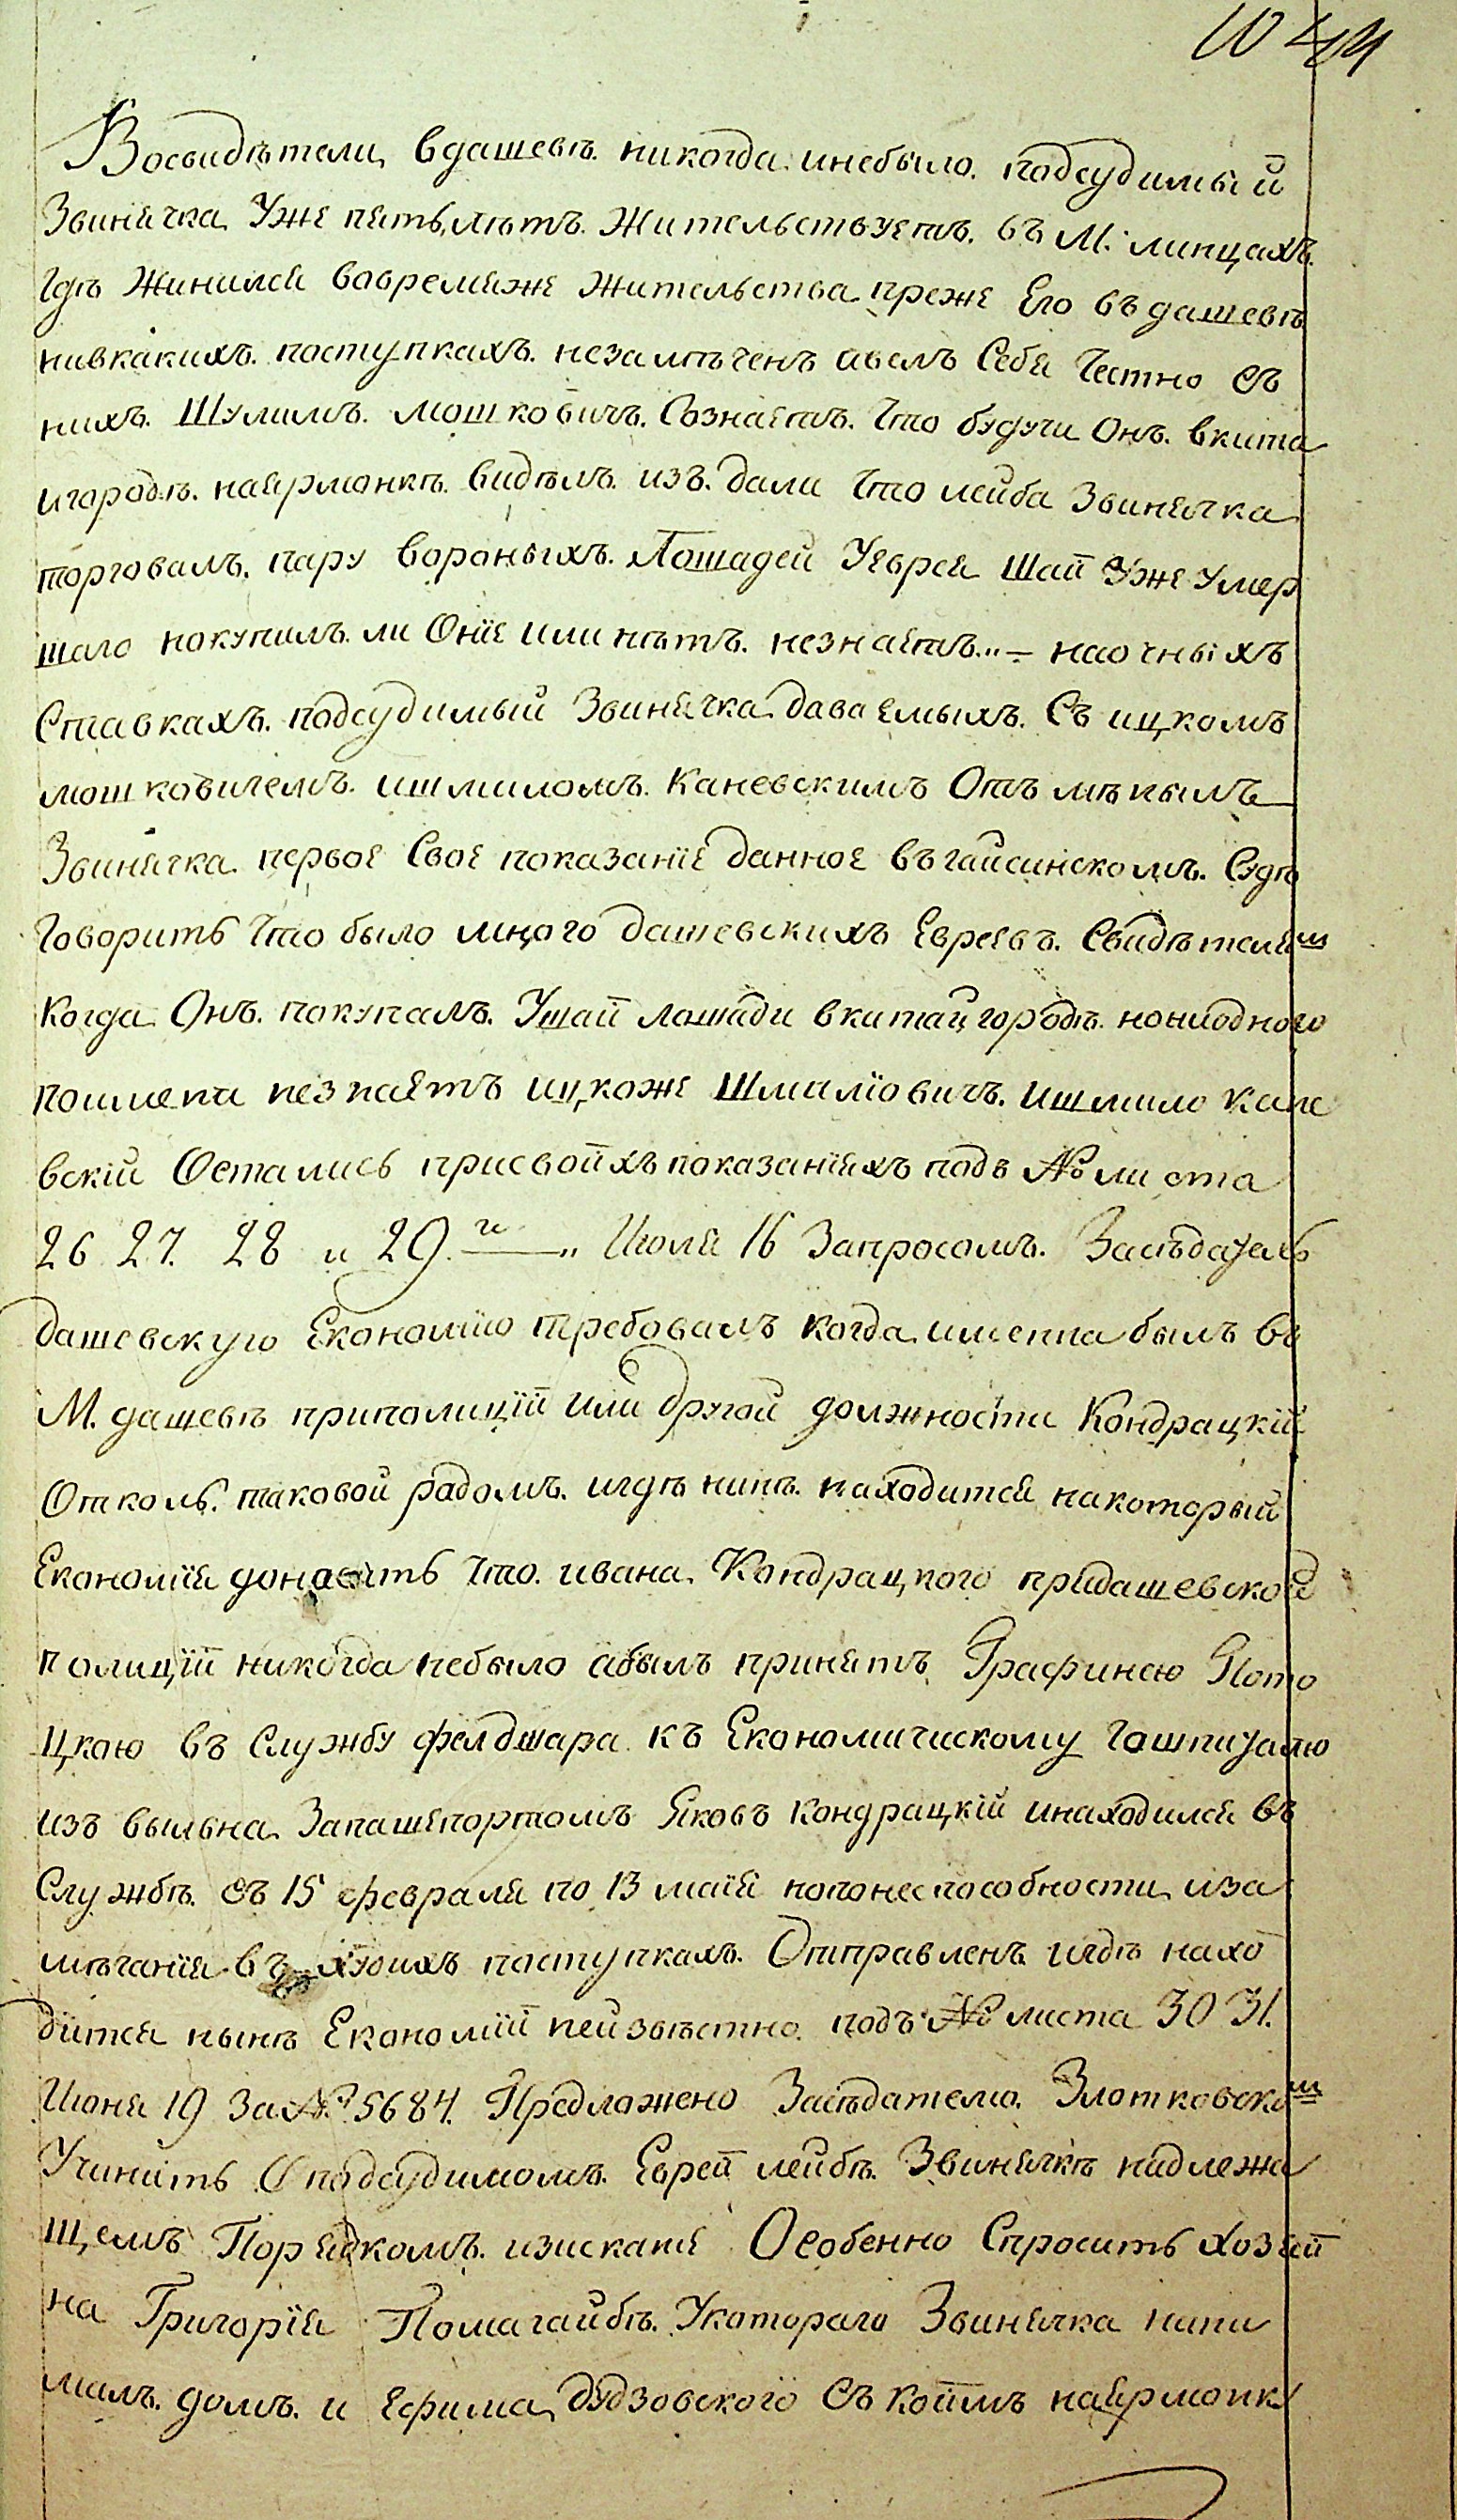 Восвидѣтели вдашевѣ никогда инебыло. подсудимый
Звинячка Уже пять лѣтъ Жительствуетъ. въ М: линцахъ.
Гдѣ Жинился вовремяже Жительства преже Его въ дашевѣ
нивкакихъ. поступкахъ. незамѣченъ ивелъ Себя Честно Съ
нихъ. Шулимъ. мошковичъ. Сознаетъ. Что будучи Онъ. вкита
игородѣ. наярмонкѣ. видѣлъ. изъ. дали Что лейба Звинячка
торговалъ. пару вороныхъ. Лошадей Уеврея Шаи Уже Умер
шаго нокупилъ. ли Оніе или нѣтъ. незнаетъ..„ — наочныхъ
Ставкахъ. подсудимый Звинячка даваемыхъ. Съ ицкомъ
мошковичемъ. ишмиломъ. Каневскимъ Отъмѣнилъ
Звинячка первое Свое показаніе данное въгайсинскомъ. Судѣ
Говорить Что было много дашевскихъ Евреевъ. Свидѣтелям
Когда Онъ. покупалъ. Ушаи лошади вкитайгородѣ. нониодного
поимени незнаетъ ицкоже Шмиліовичъ. ишмило кане
вскій Остались присвоихъ показаніяхъ подъ № листа
26 27. 28 и 29.й —„ Июля 16 Запросомъ. Засѣдатель
дашевскую Економію требовалъ когда именна былъ въ
М. дашевѣ приполиціи или другой должности Кондрацкій
Отколь. таковой радомъ. игдѣ нинѣ. находится накоторый
Економія доноситъ Что. ивана. Кондрацкого придашевской
полиціи никогда небыло абылъ принятъ Графинею Пото
цкою въ Службу фелдшара къ Економическому Гошпиталю
изъ вильна Запашепортомъ Яковъ кондрацкій инаходился въ
Службѣ. съ 15 февраля по 13 маія попонеспособности иза
мѣчанія въ худихъ поступкахъ. Отправленъ игдѣ нахо
дится нынѣ Економіи неизвѣстно. подъ № листа 30 31.
Июня 19 За № 5684. Предложено Засѣдателю. Злотковском
Учинить О подсудимомъ. Евреи лейбѣ. Звинячкѣ надлежа
щемъ Порядкомъ. изисканіе Особенно Спросить хозяи
на Григорія Помагайбѣ. Укоторого Звинячка нани
малъ. домъ. и Ефима Дудзовского съ коимъ наярмонку